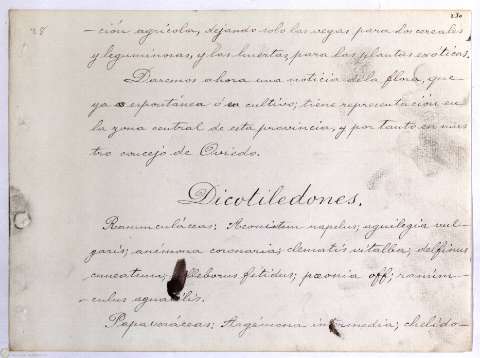 28
230
-ción agrícola, dejando solo las vegas para los cereales
y leguminosas, y las huertas, para las plantas exóticas.
Daremos ahora una noticia de la flora, que
ya espontánea ó en cultivo; tiene representación en
la zona central de esta provincia, y por tanto en nues
tro concejo de Oviedo.
Dicotiledones.
Ranunculáceas: Aconitum napelus; aquilegia vul-
garis; anémona coronaria; clematis vitalba; delfinus
; fetidus; pæonia off; ranún-
culus aquatilis.
Papaveráceas: Argémona intermedia; chelido-